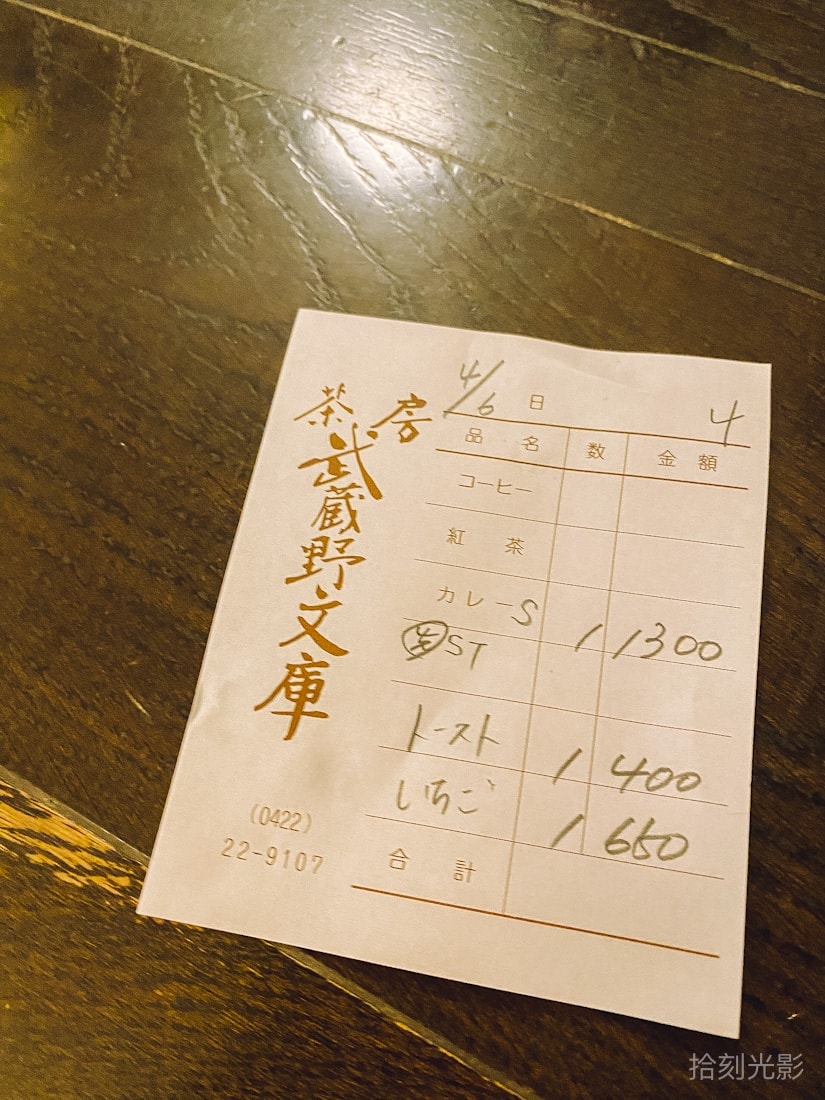 茶房
武蔵野文庫
(0422)
22-9107
4/6 日 4
品名 数 金額
コーヒー
紅茶
カレーS 1 1300
ST
トースト 1 400
いちご 1 650
合計
拾刻光影